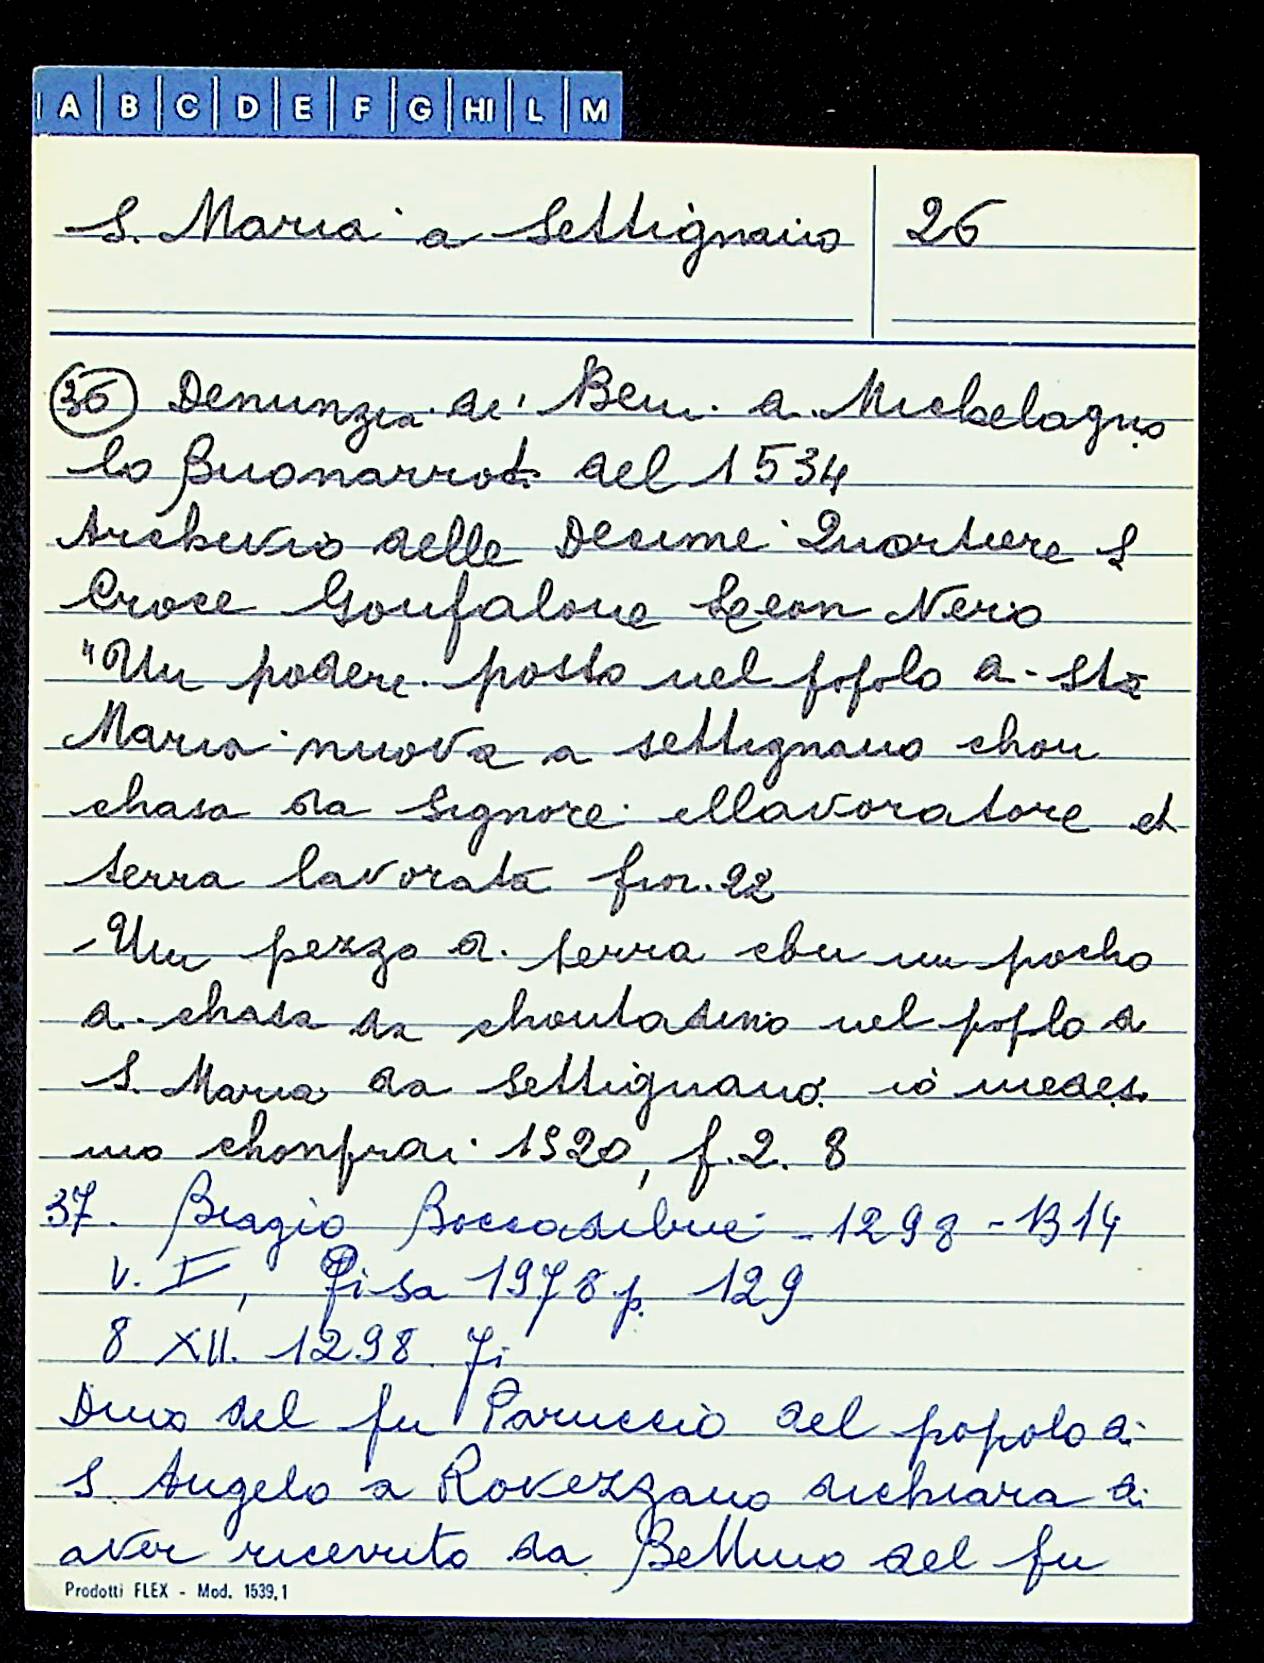 A B C D E F G HI L M
S. Maria a Settignano 26
36 Denunzia dei Beni di Michelagno
lo Buonarroti del 1534
Archivio delle Decime Quartiere S
Croce Gonfalone Leon Nero
"Un podere posto nel popolo di Sta
Maria nuova a settignano chon
chasa da Signore ellavoratore et
terra lavorata fior. 22
- Un pezzo di terra chu un pocho
di chasa da chontadino nel poplo di
S. Maria da Settignano io medes.
mo chonprai 1520, f. 2. 8
37. Biagio Boccadibue - 1298 - 1314
V. I, Pisa 1978 p. 129
8 XII. 1298 Fi
Duco del fu Paruccio del popolo di
S. Angelo a Rovezzano dichiara di
aver ricevuto da Bettino del fu
Prodotti FLEX - Mod. 1539,1